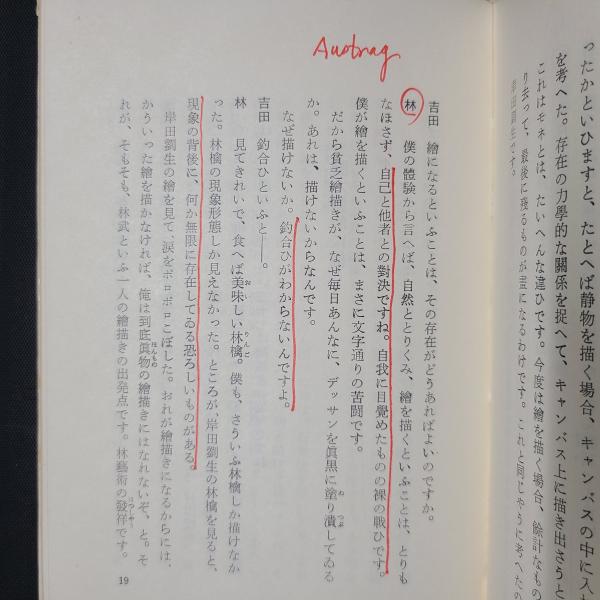 ったかといひますと、たとへば静物を描く場合、キャンバスの中に入
を考へた。存在の力學的な關係を捉へて、キャンバス上に描き出さうと
これはモネとは、たいへんな違ひです。今度は繪を描く場合、餘計なもの
り去って、最後に殘るものが靈になるわけです。これと同じやうに考へたの
岸田劉生です。
Austrag
吉田 繪になるといふことは、その存在がどうあればよいのですか。
林 僕の體驗から言へば、自然ととりくみ、繪を描くといふことは、とりも
なほさず、自己と他者との對決ですね。自我に目覺めたものの裸の戰ひです。
僕が繪を描くといふことは、まさに文字通りの苦闘です。
だから貧乏繪描きが、なぜ毎日あんなに、デッサンを眞黑に塗り潰してゐる
か。あれは、描けないからなんです。
なぜ描けないか。釣合ひがわからないんですよ。
吉田 釣合ひといふと――。
林 見てきれいで、食へば美味しい林檎。僕も、さういふ林檎しか描けなか
った。林檎の現象形態しか見えなかった。ところが、岸田劉生の林檎を見ると、
現象の背後に、何か無限に存在してゐる恐ろしいものがある。
岸田劉生の繪を見て、涙をボロボロこぼした。おれが繪描きになるからには、
かういった繪を描かなければ、俺は到底眞物の繪描きにはなれないぞ、と。そ
れが、そもそも、林武といふ一人の繪描きの出発点です。林藝術の發祥です。
19